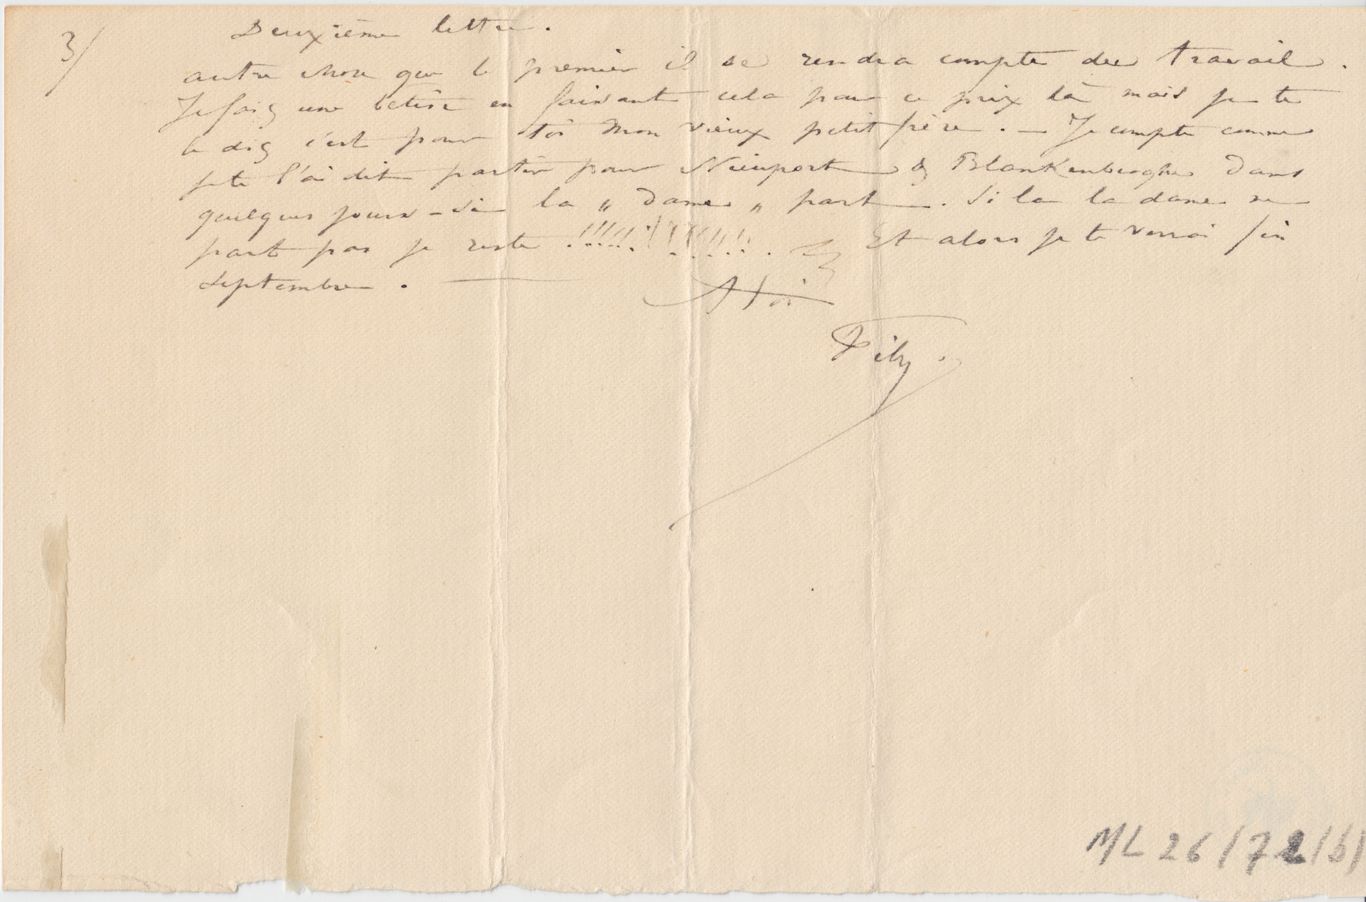 3/
Deuxième lettre.
autre chose que le premier il se rendra compte du travail.
Je fais une bêtise en faisant cela pour ce prix là mais je te
le dis c'est pour toi mon vieux petit frère. — Je compte comme
je te l'ai dit partir pour Nieuport & Blankenberghe dans
quelques jours – si la „ dame „ part. Si la la dame ne
part pas je reste !!!!!!!!!!!!. Et alors je te verrai fin
septembre. —
A toi
Fély.
ML 26/72/b/